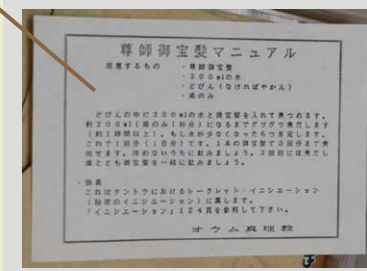 尊師御宝髪マニュアル
用意するもの ・尊師御宝髪
・300mlの水
・どびん(なければやかん)
・湯のみ
どびんの中に300mlの水と御宝髪を入れて煮つめます。
約200ml(湯のみ1杯分)になるまでグツグツ煮だします
(約1時間以上)。もし水が少なくなったらつぎ足します。
これで1回分(1日分)です。1本の御宝髪で3回分まで煮
出せます。冷めないうちに飲みましょう。3回目には煮だし
湯ととも御宝髪を一緒に飲みましょう。
・効果
これはタントラにおけるシークレット・イニシエーション
(秘密のイニシエーション)に属します。
「イニシエーション」124頁を参照して下さい。
オウム真理教